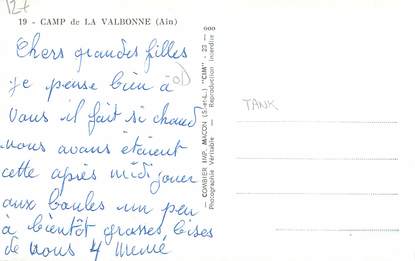 12+
19 - CAMP de LA VALBONNE (Ain)
Chers grandes filles
je pense bien à
vous il fait si chaud
nous avons étaient
cette après midi jouer
aux boules un peu
à bientôt grosses bises
de nous 4 mémé
COMBIER IMP. MACON (S.-et-L.) "CIM" - 23 - 000
Photographie Véritable - Reproduction interdite
TANK